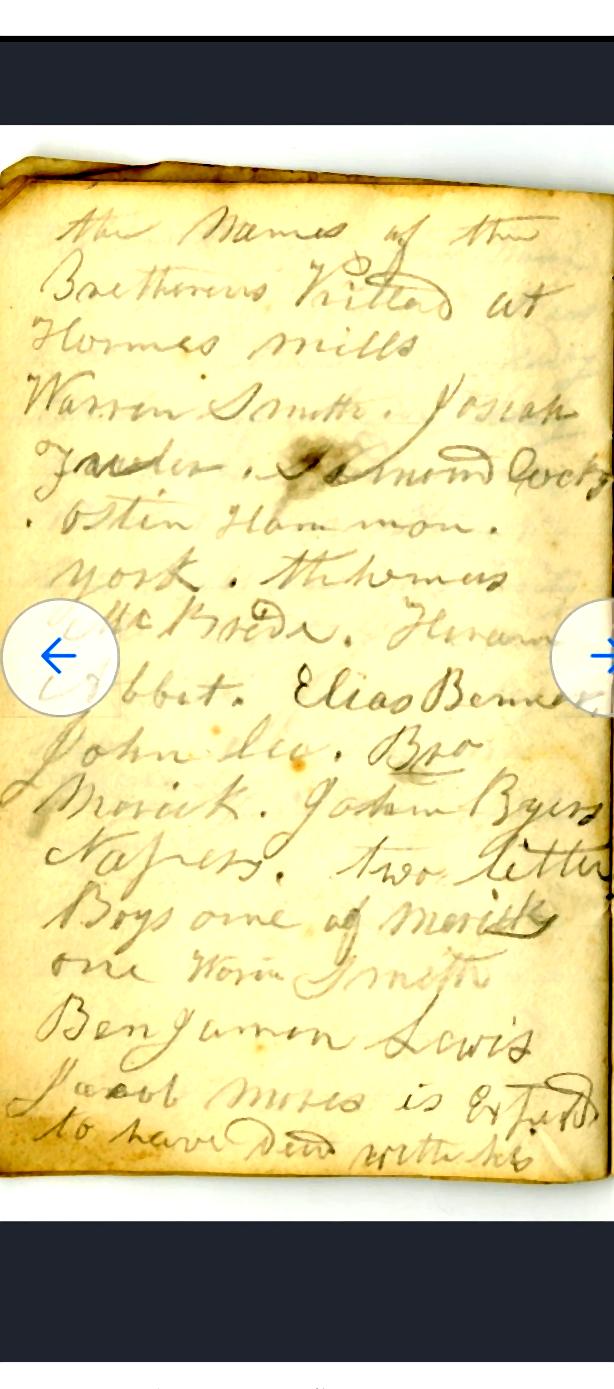 the Names of the
Bretherens Killed at
Hornes mills
Warren Smith. Josiah
Fuller.
. ostin Hammon.
york. thhomus
McBride. Hiram
Abbat. Elias Benner
John Lee. Bro
Merick. Joshua Byers
Napers. two little
Boys one of Mericks
one Worin Smith
Benjamin Lewis
Jacob mores is Exspcted
to have Died with his